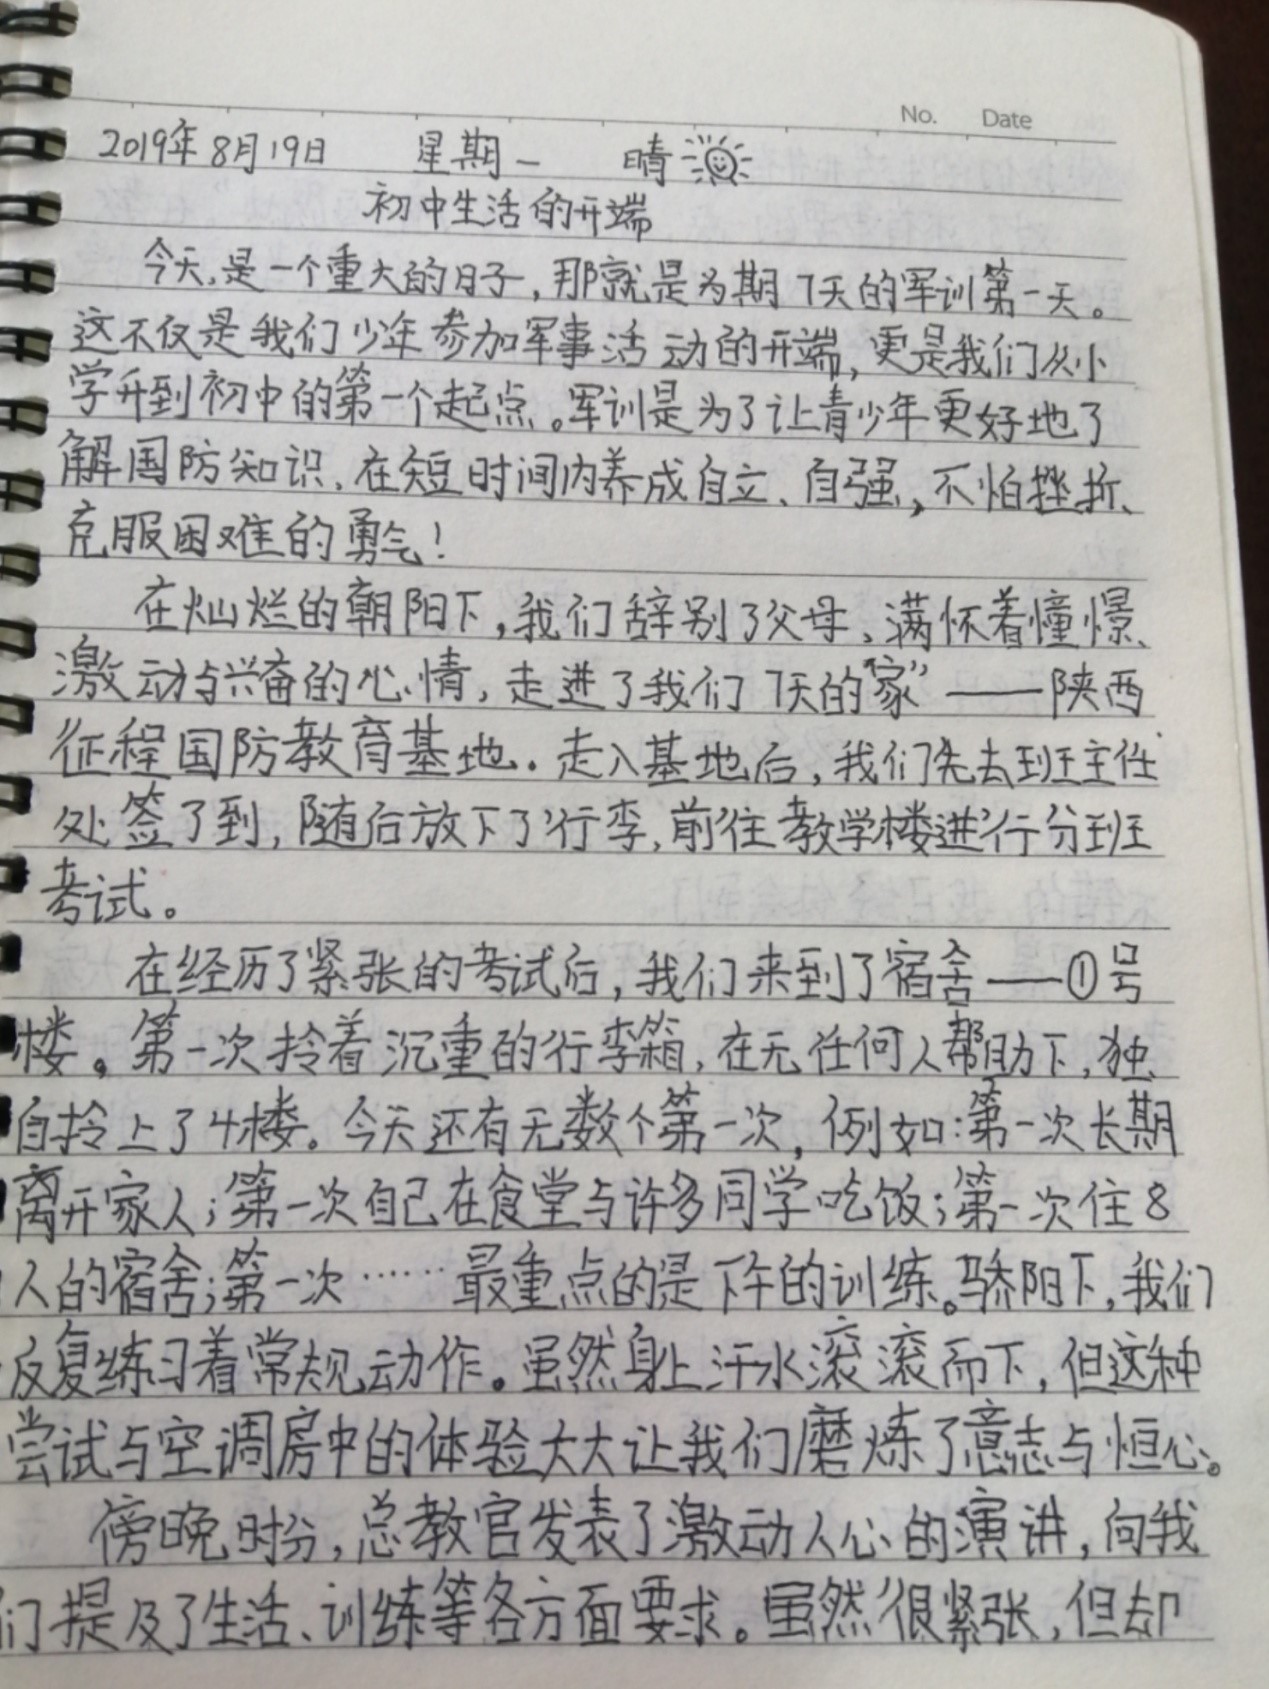 No. Date
2019年8月19日 星期一 晴
初中生活的开端
今天,是一个重大的日子,那就是为期7天的军训第一天。
这不仅是我们少年参加军事活动的开端,更是我们从小
学升到初中的第一个起点。军训是为了让青少年更好地了
解国防知识、在短时间内养成自立、自强,不怕挫折、
克服困难的勇气!
在灿烂的朝阳下,我们辞别了父母、满怀着憧憬、
激动与兴奋的心情,走进了我们7天的“家”——陕西
征程国防教育基地.走入基地后,我们先去到班主任
处签了到,随后放下了行李,前往教学楼进行分班
考试。
在经历了紧张的考试后,我们来到了宿舍——①号
楼。第一次拎着沉重的行李箱,在无任何人帮助下,独
自拎上了4楼。今天还有无数个第一次,例如:第一次长期
离开家人;第一次自己在食堂与许多同学吃饭;第一次住8
人的宿舍;第一次……最重点的是下午的训练。骄阳下,我们
反复练习着常规动作。虽然身上汗水滚滚而下,但这种
尝试与空调房中的体验大大让我们磨炼了意志与恒心。
傍晚时分,总教官发表了激动人心的演讲,向我
们提及了生活、训练等各方面要求。虽然很紧张,但却